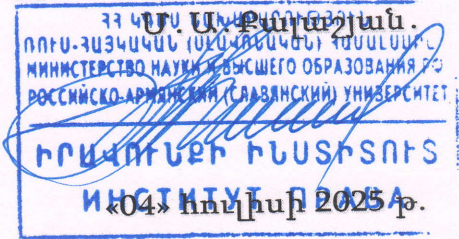 Մ. Ա. Քալաշյան.
ՌՈՒՍ-ՀԱՅԿԱԿԱՆ (ՍԼԱՎՈՆԱԿԱՆ) ՀԱՄԱԼՍԱՐԱՆ
МИНИСТЕРСТВО НАУКИ И ВЫСШЕГО ОБРАЗОВАНИЯ РФ
РОССИЙСКО-АРМЯНСКИЙ (СЛАВЯНСКИЙ) УНИВЕРСИТЕТ
ԻՐԱՎՈՒՆՔԻ ԻՆՍՏԻՏՈՒՏ
ИНСТИТУТ ПРАВА
«04» հուլիսի 2025 թ.